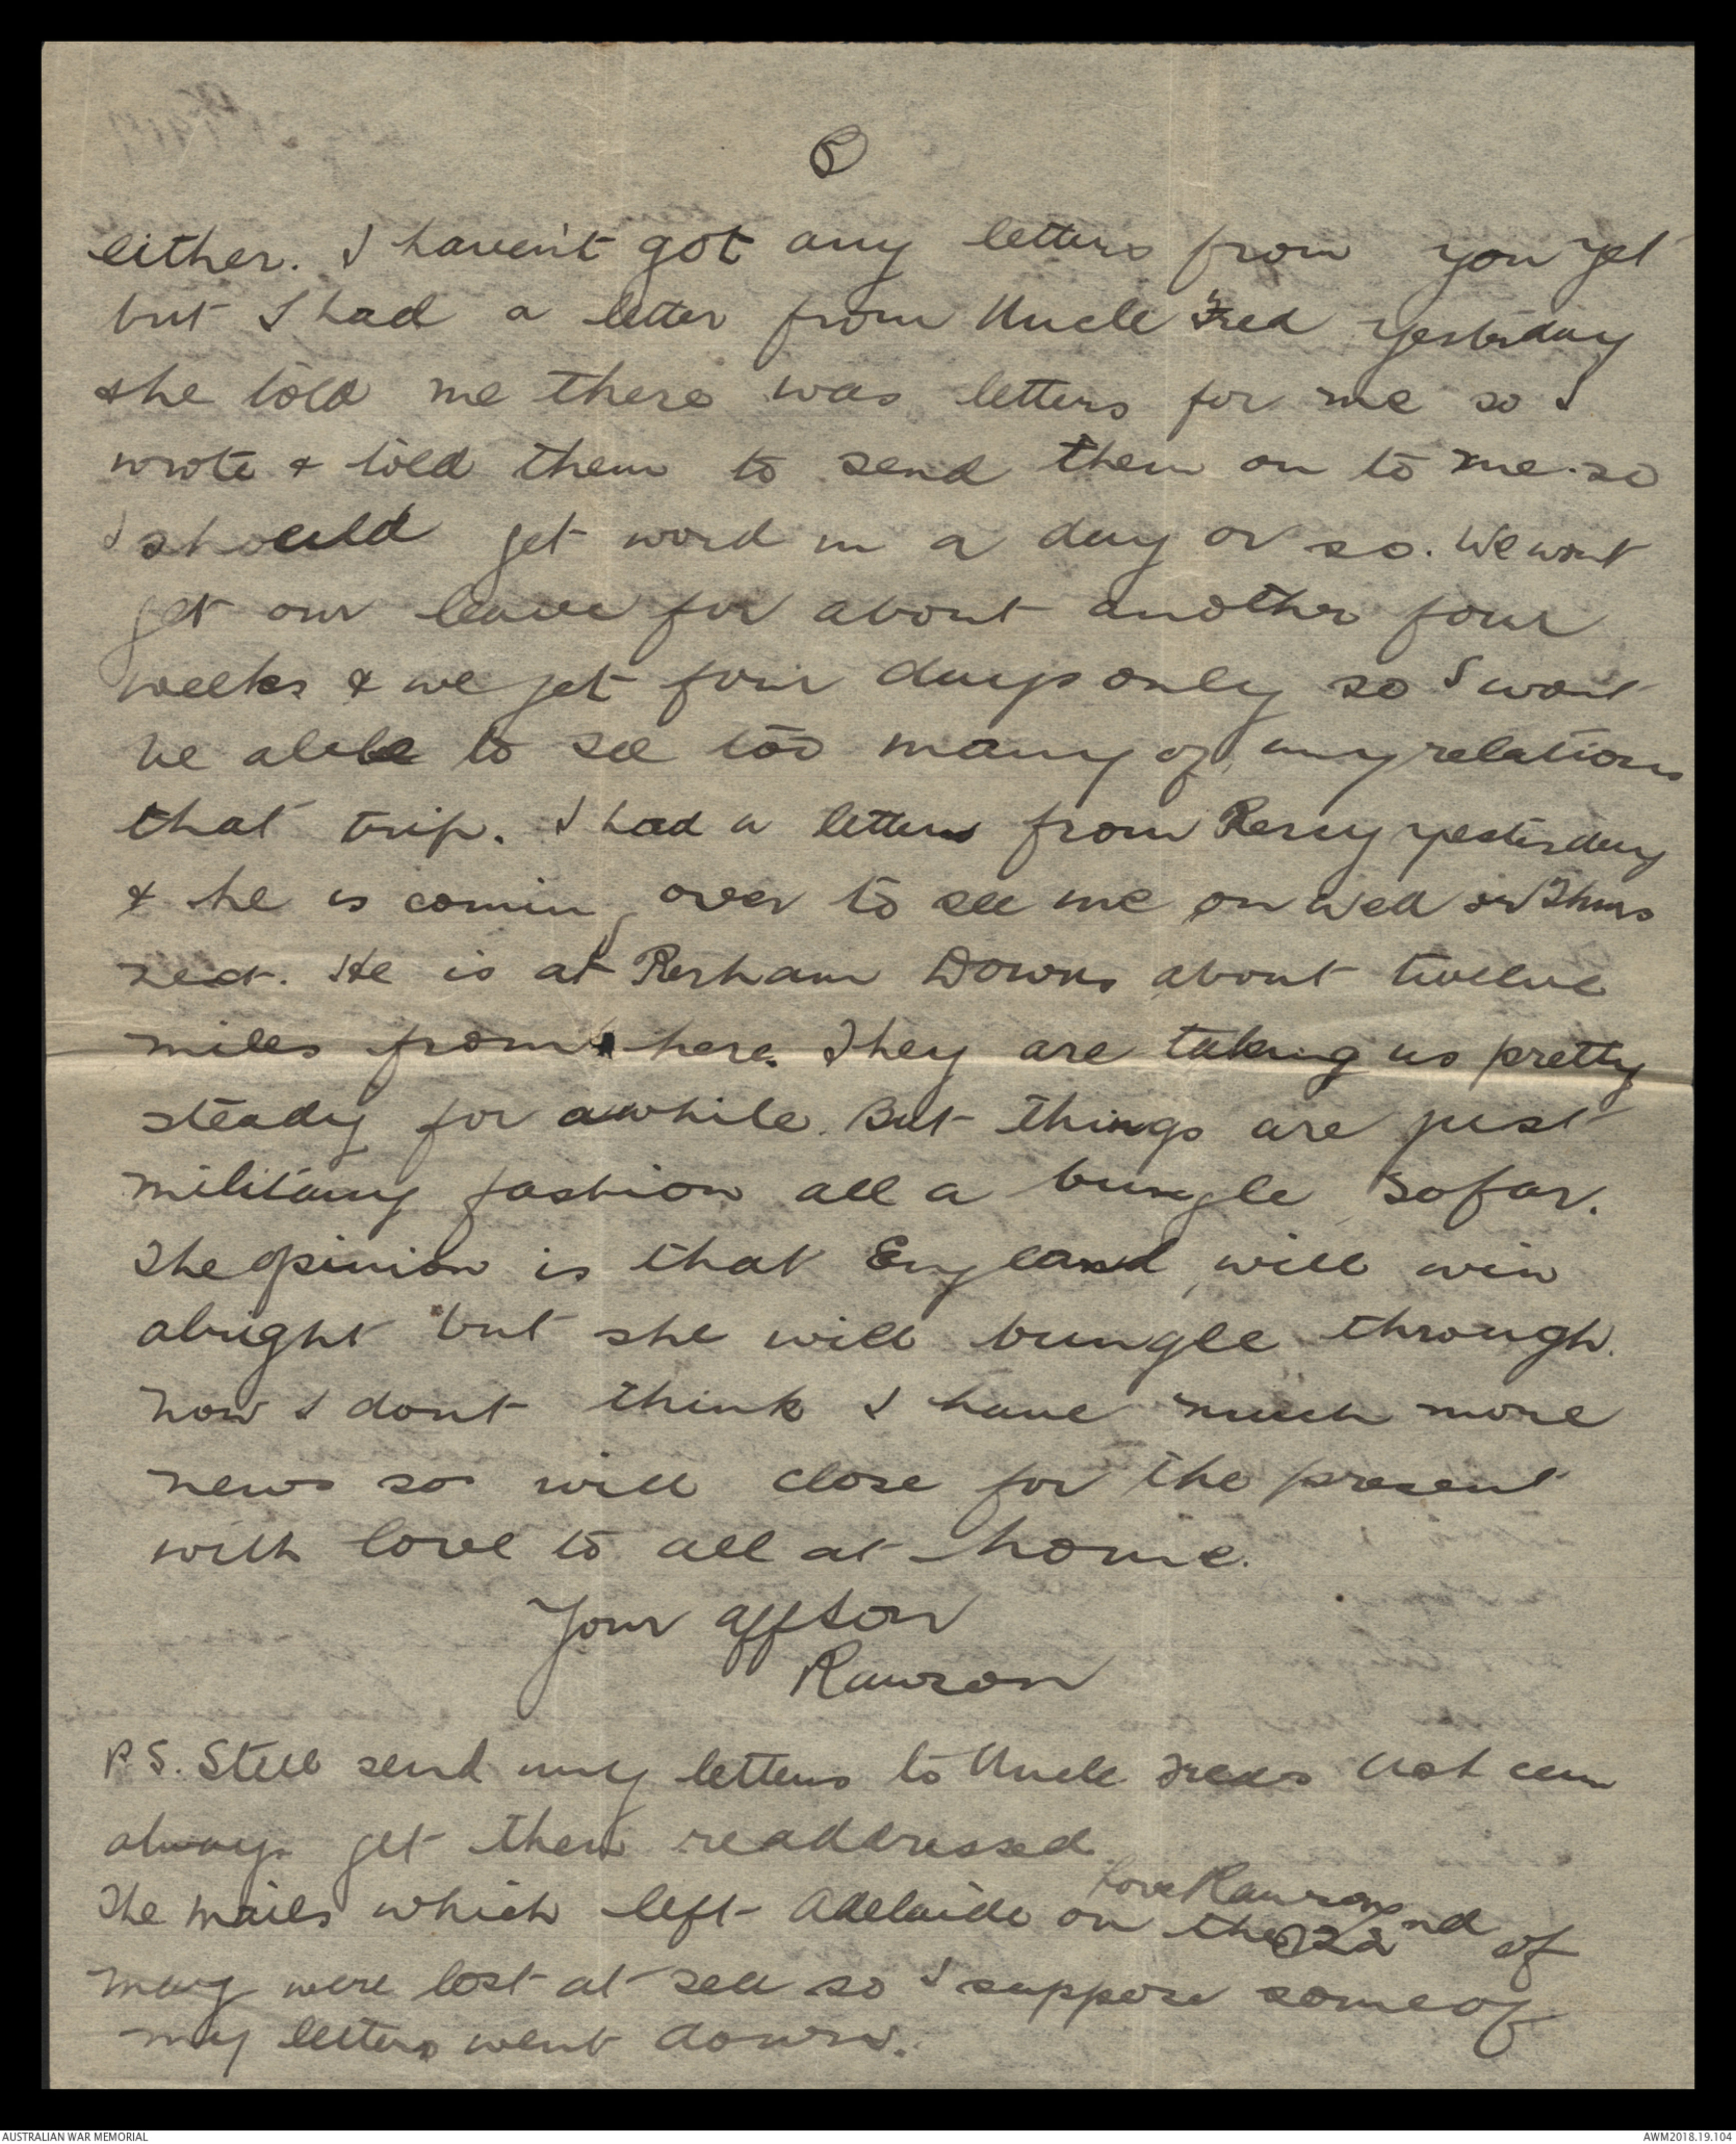 5
either. I haven't got any letters from you yet
but I had a letter from Uncle Fred yesterday
& he told me there was letters for me so I
wrote & told them to send them on to me so
I should get word in a day or so. We wont
get our leave for about another four
weeks & we get four days only so I wont
be able to see too many of my relations
that trip. I had a letter from Percy yesterday
& he is coming over to see me on Wed or Thurs
next. He is at Perham Downs about twelve
miles from here. They are taking us pretty
steady for awhile. But things are just
military fashion all a bungle sofar.
The opinion is that England will win
alright but she will bungle through.
now I dont think I have much more
news so will close for the present
with love to all at home.
Your aff son
Rawson
P.S. Still send my letters to Uncle Freds can
always get them readdressed.
love Rawson
The mails which left Adelaide on the 22nd of
may were lost at sea so I suppose some of
my letters went down.
AUSTRALIAN WAR MEMORIAL
AWM2018.19.104